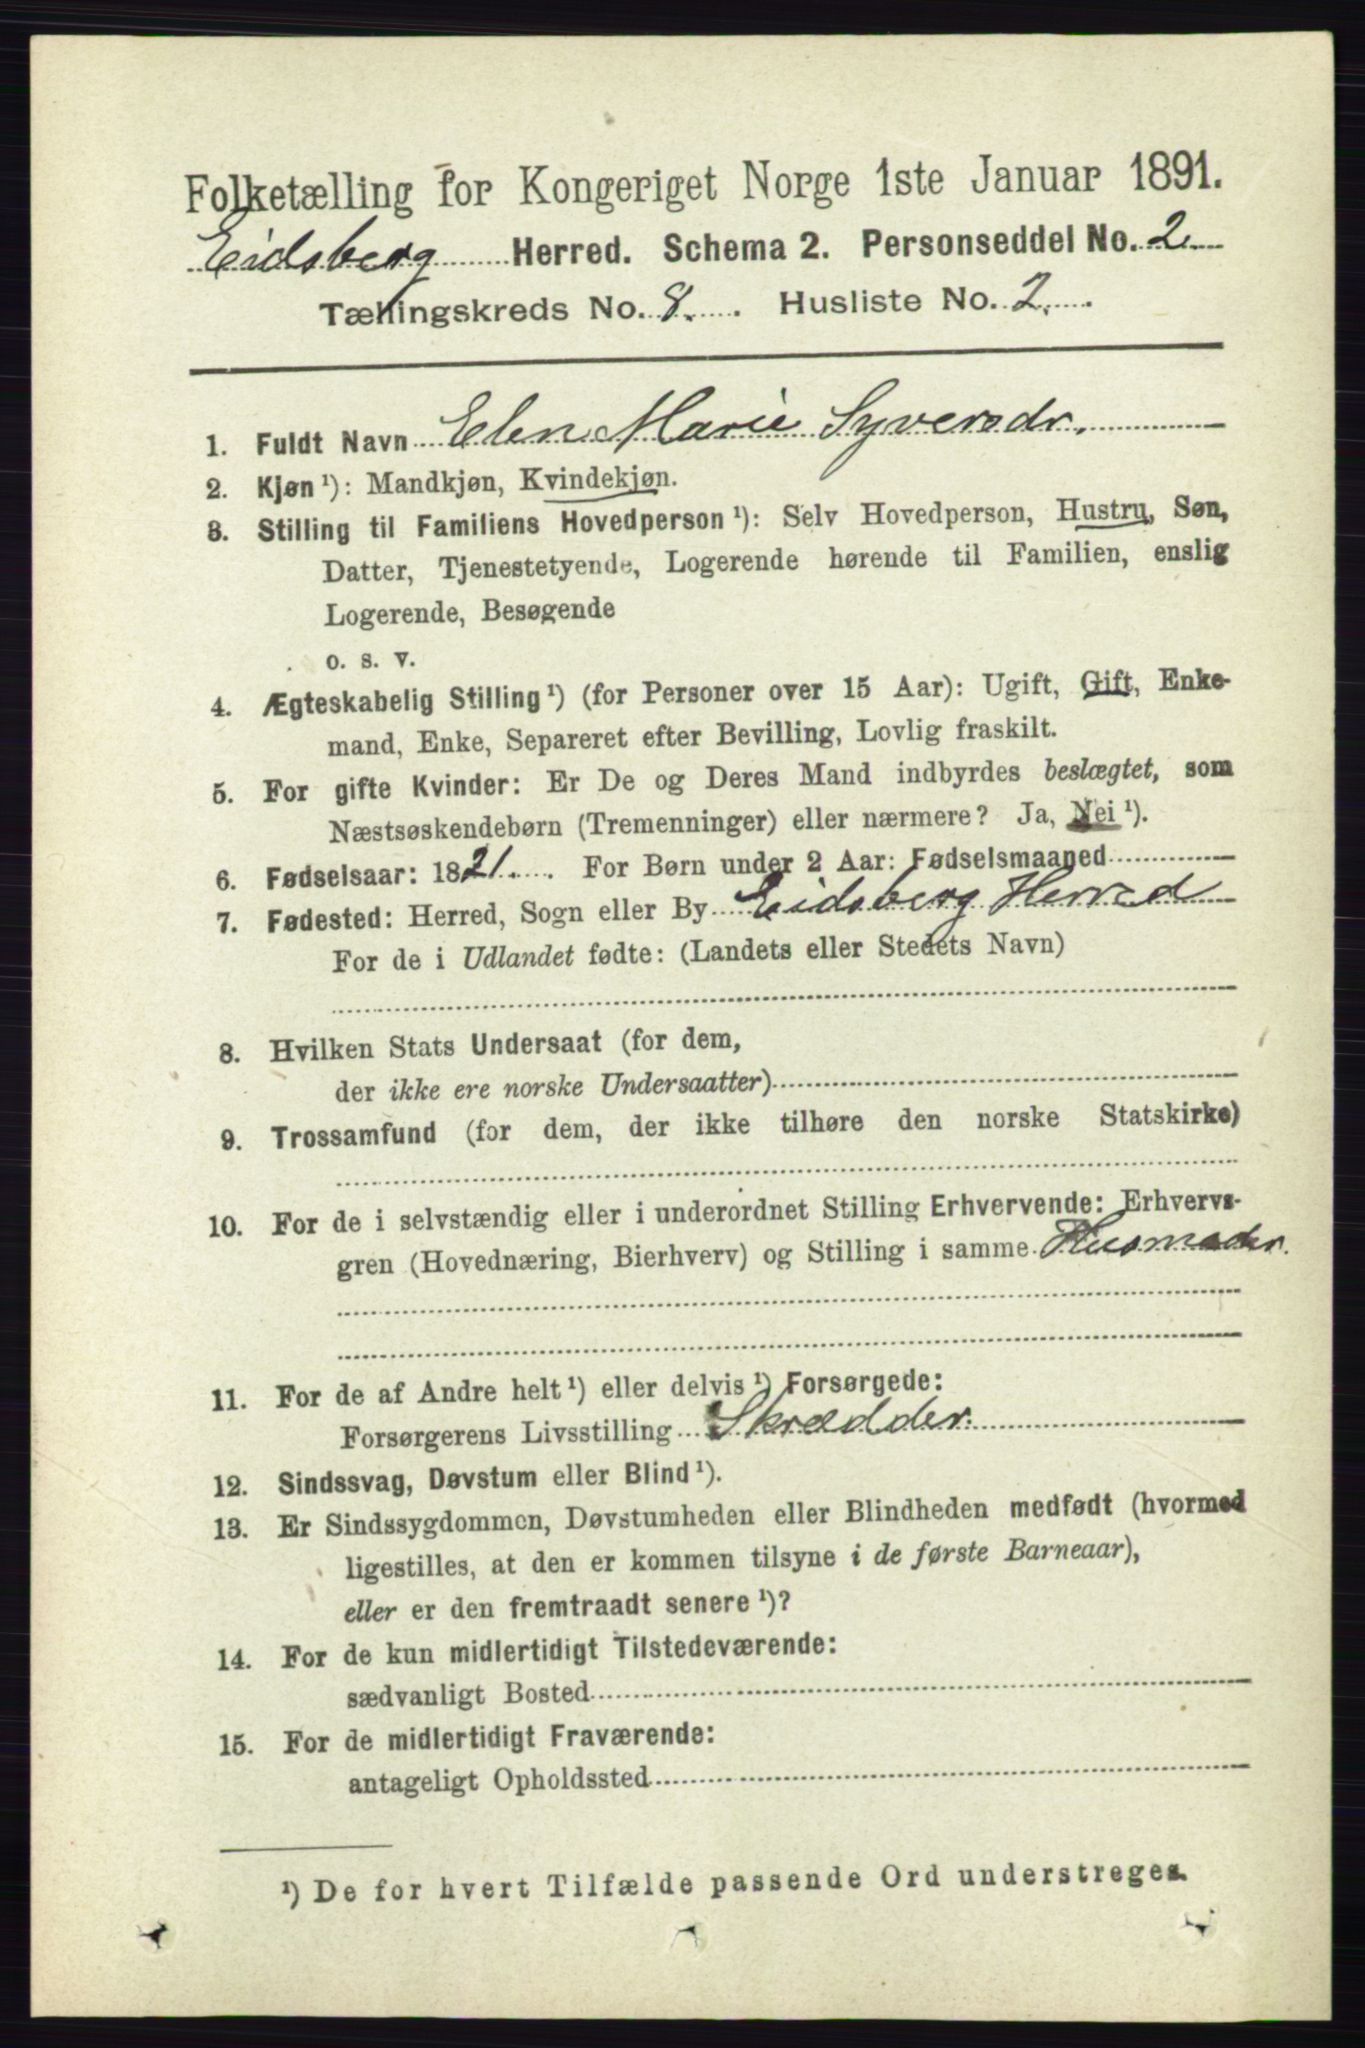 Folketælling for Kongeriget Norge 1ste Januar 1891.
Eidsberg Herred. Schema 2. Personseddel No. 2.
Tællingskreds No. 8. Husliste No. 2.
1. Fuldt Navn Elen Marie Syversdr.
2. Kjøn ¹): Mandkjøn, Kvindekjøn.
3. Stilling til Familiens Hovedperson ¹): Selv Hovedperson, Hustru, Søn,
Datter, Tjenestetyende, Logerende hørende til Familien, enslig
Logerende, Besøgende
o. s. v.
4. Ægteskabelig Stilling ¹) (for Personer over 15 Aar): Ugift, Gift, Enke-
mand, Enke, Separeret efter Bevilling, Lovlig fraskilt.
5. For gifte Kvinder: Er De og Deres Mand indbyrdes beslægtet, som
Næstsøskendebørn (Tremenninger) eller nærmere? Ja, Nei ¹).
6. Fødselsaar: 1821. For Børn under 2 Aar: Fødselsmaaned
7. Fødested: Herred, Sogn eller By Eidsberg Herred
For de i Udlandet fødte: (Landets eller Stedets Navn)
8. Hvilken Stats Undersaat (for dem,
der ikke ere norske Undersaatter)
9. Trossamfund (for dem, der ikke tilhøre den norske Statskirke)
10. For de i selvstændig eller i underordnet Stilling Erhvervende: Erhvervs-
gren (Hovednæring, Bierhverv) og Stilling i samme Husmoder.
11. For de af Andre helt ¹) eller delvis ¹) Forsørgede:
Forsørgerens Livsstilling Skrædder.
12. Sindssvag, Døvstum eller Blind ¹).
13. Er Sindssygdommen, Døvstumheden eller Blindheden medfødt (hvormed
ligestilles, at den er kommen tilsyne i de første Barneaar),
eller er den fremtraadt senere ¹)?
14. For de kun midlertidigt Tilstedeværende:
sædvanligt Bosted
15. For de midlertidigt Fraværende:
antageligt Opholdssted
¹) De for hvert Tilfælde passende Ord understreges.